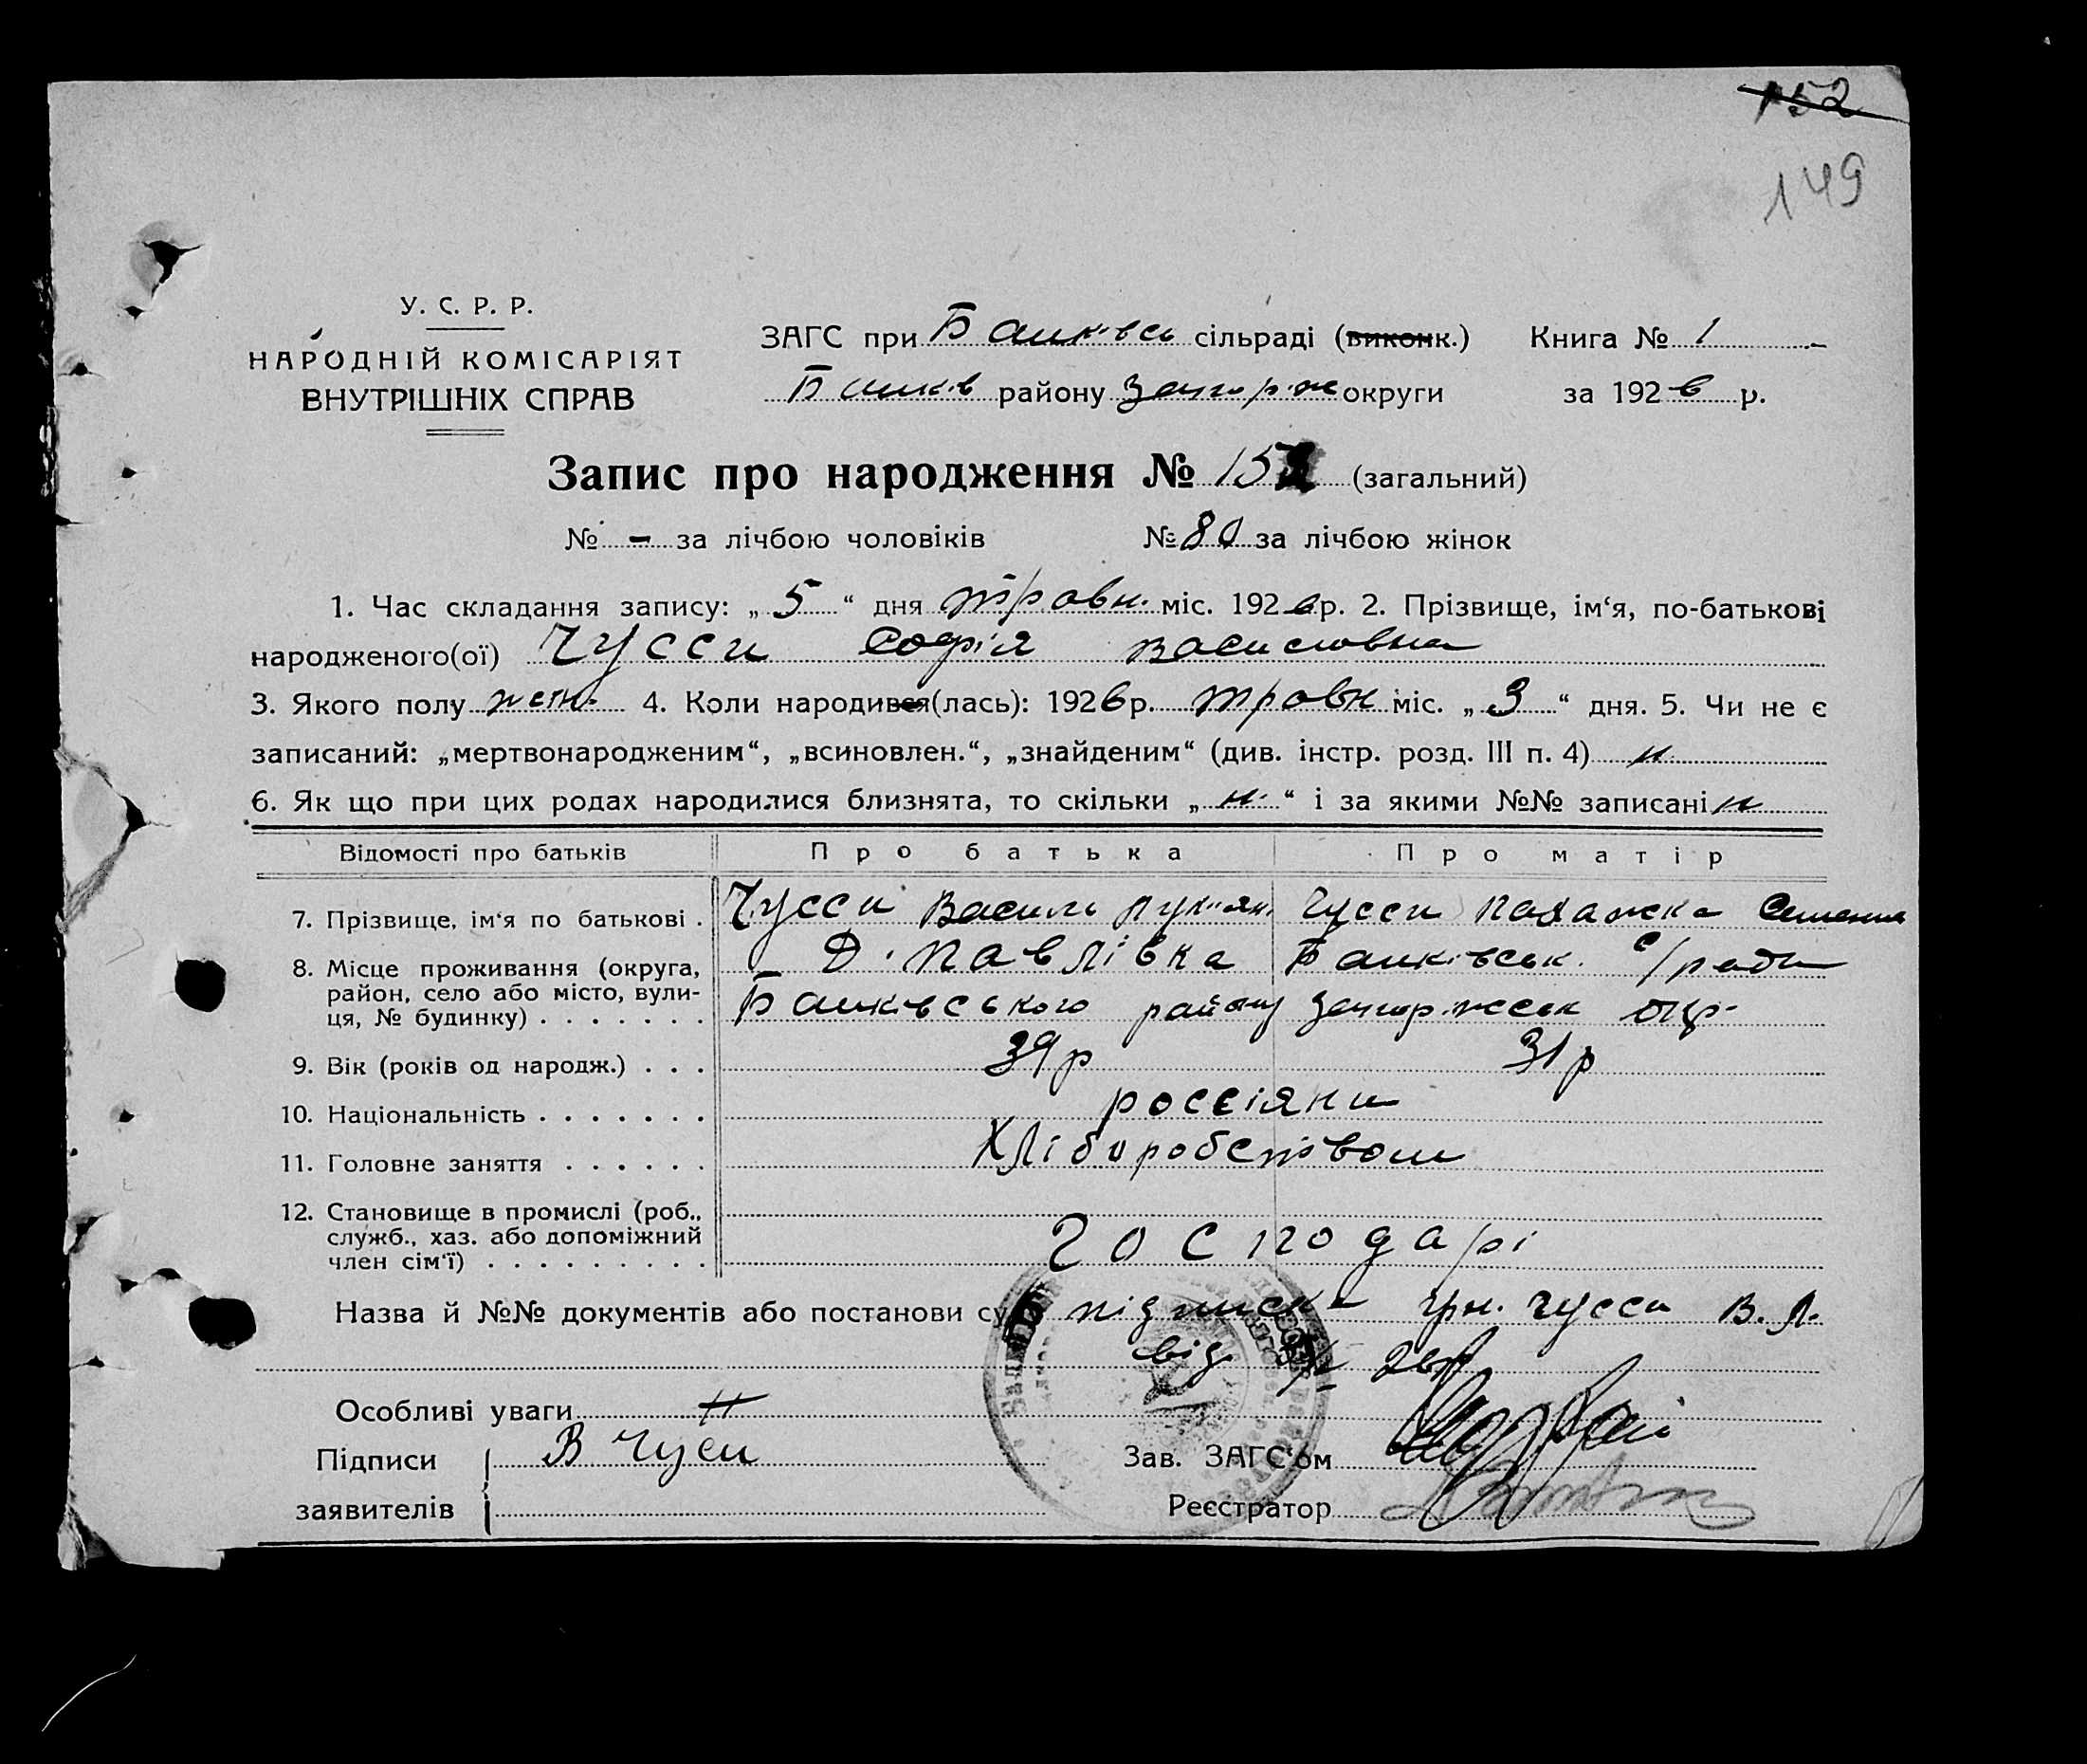 152
149
У. С. Р. Р.
НАРОДНІЙ КОМІСАРІЯТ
ВНУТРІШНІХ СПРАВ
ЗАГС при Балківсь сільраді (виконк.) Книга № 1
Балків району Запоріж округи за 1926 р.
Запис про народження № 152 (загальний)
№ - за лічбою чоловіків № 80 за лічбою жінок
1. Час складання запису: „ 5 “ дня травн. міс. 1926 р. 2. Прізвище, ім‘я, по-батькові
народженого(ої) Чусси Софія Василовна
3. Якого полу жін. 4. Коли народився(лась): 1926 р. травн міс. „ 3 “ дня. 5. Чи не є
записаний: „мертвонародженим“, „всиновлен.“, „знайденим“ (див. інстр. розд. III п. 4) н
6. Як що при цих родах народилися близнята, то скільки „ н. “ і за якими №№ записані н
Відомості про батьків Про батька Про матір
7. Прізвище, ім‘я по батькові . Чусси Василь Лук'ян. Чусси Палажка Семени
8. Місце проживання (округа, Д. Павлівка Балківськ. с/ради
район, село або місто, вули- Балківського району Запоріжськ окр.
ця, № будинку) . . . . . . .
9. Вік (років од народж.) . . . 39 р 31 р
10. Національність . . . . . . . россіяни
11. Головне заняття . . . . . . Хліборобством
12. Становище в промислі (роб.,
служб., хаз. або допоміжний Господарі
член сім‘ї) . . . . . . . . .
Назва й №№ документів або постанови су підписка гр. Чусси В. Л.
від 26 р
Особливі уваги н
Підписи В Чуси Зав. ЗАГС‘ом
заявителів Реєстратор